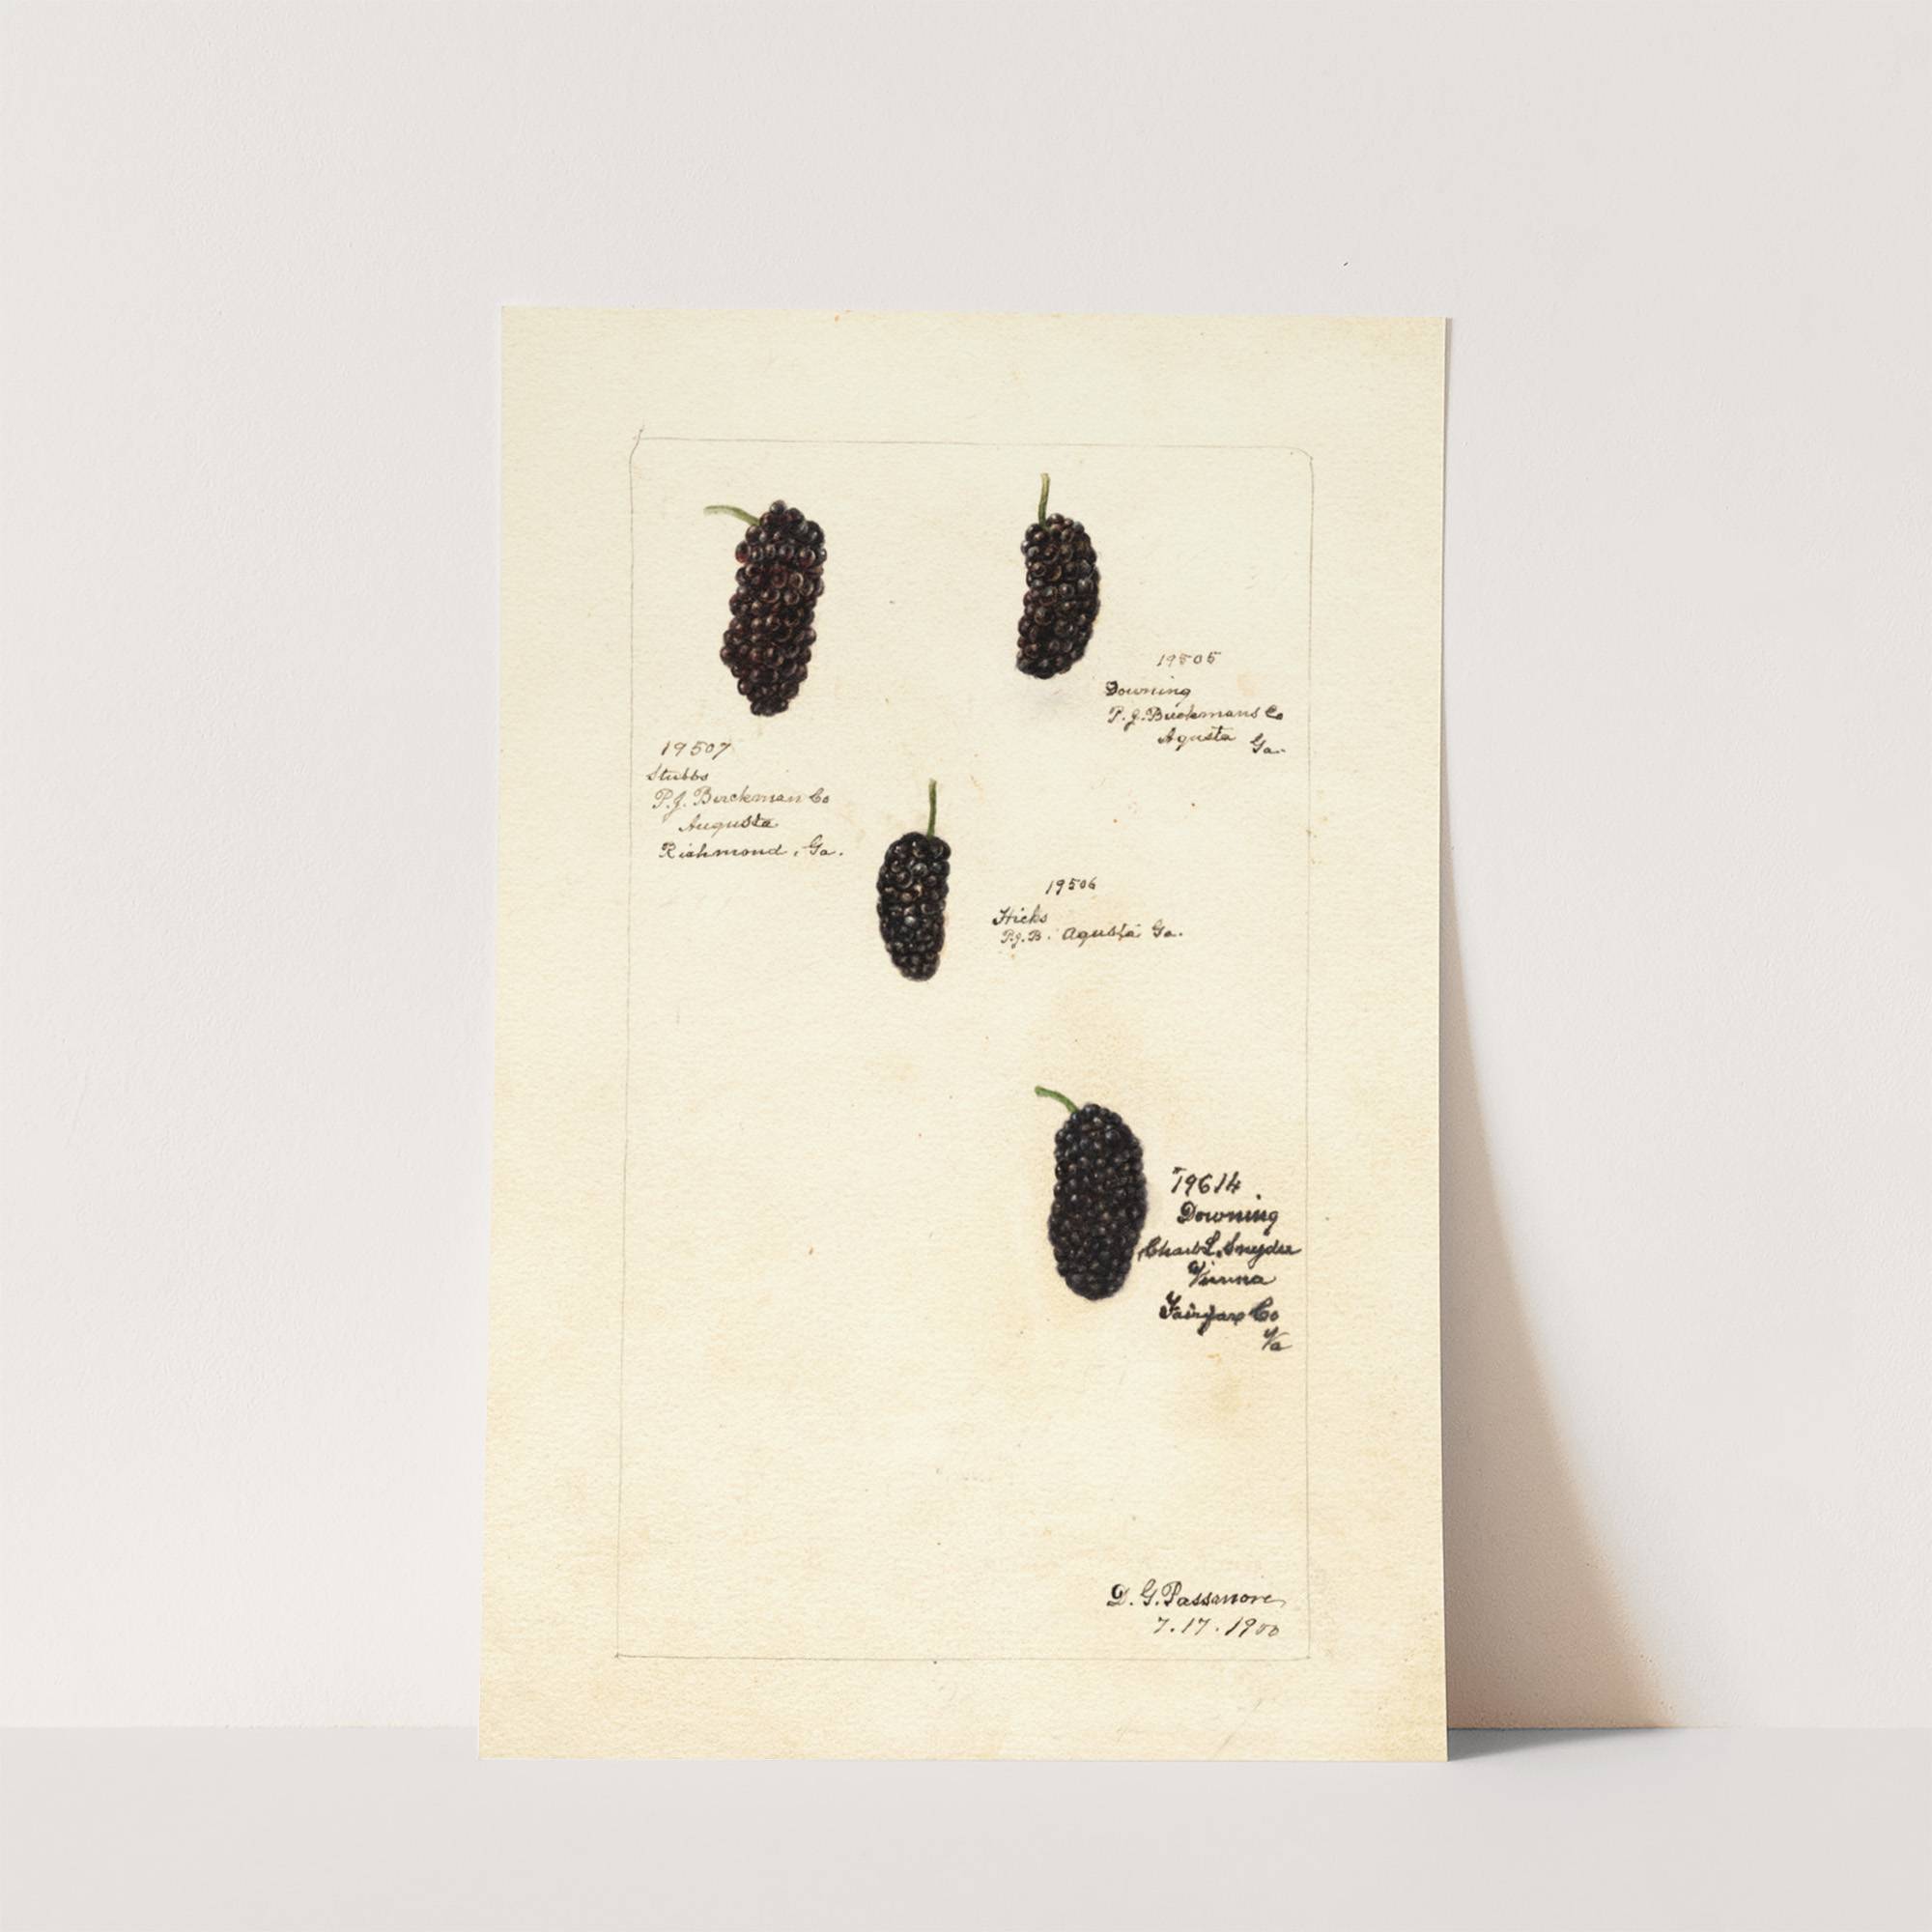 19505
Downing
P. J. Berckmans Co
Agusta Ga.
19507
Stubbs
P. J. Berckman Co
Augusta
Richmond, Ga.
19506
Hicks
P.J.B. Agusta Ga.
19614
Downing
Chas L. Snyder
Vienna
Fairfax Co
Va
D. G. Passmore
7.17.1900